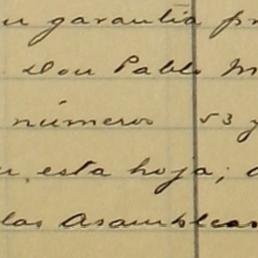 su garantía pr
Don Pablo M
números 53 y
en esta hoja; a
las Asambleas